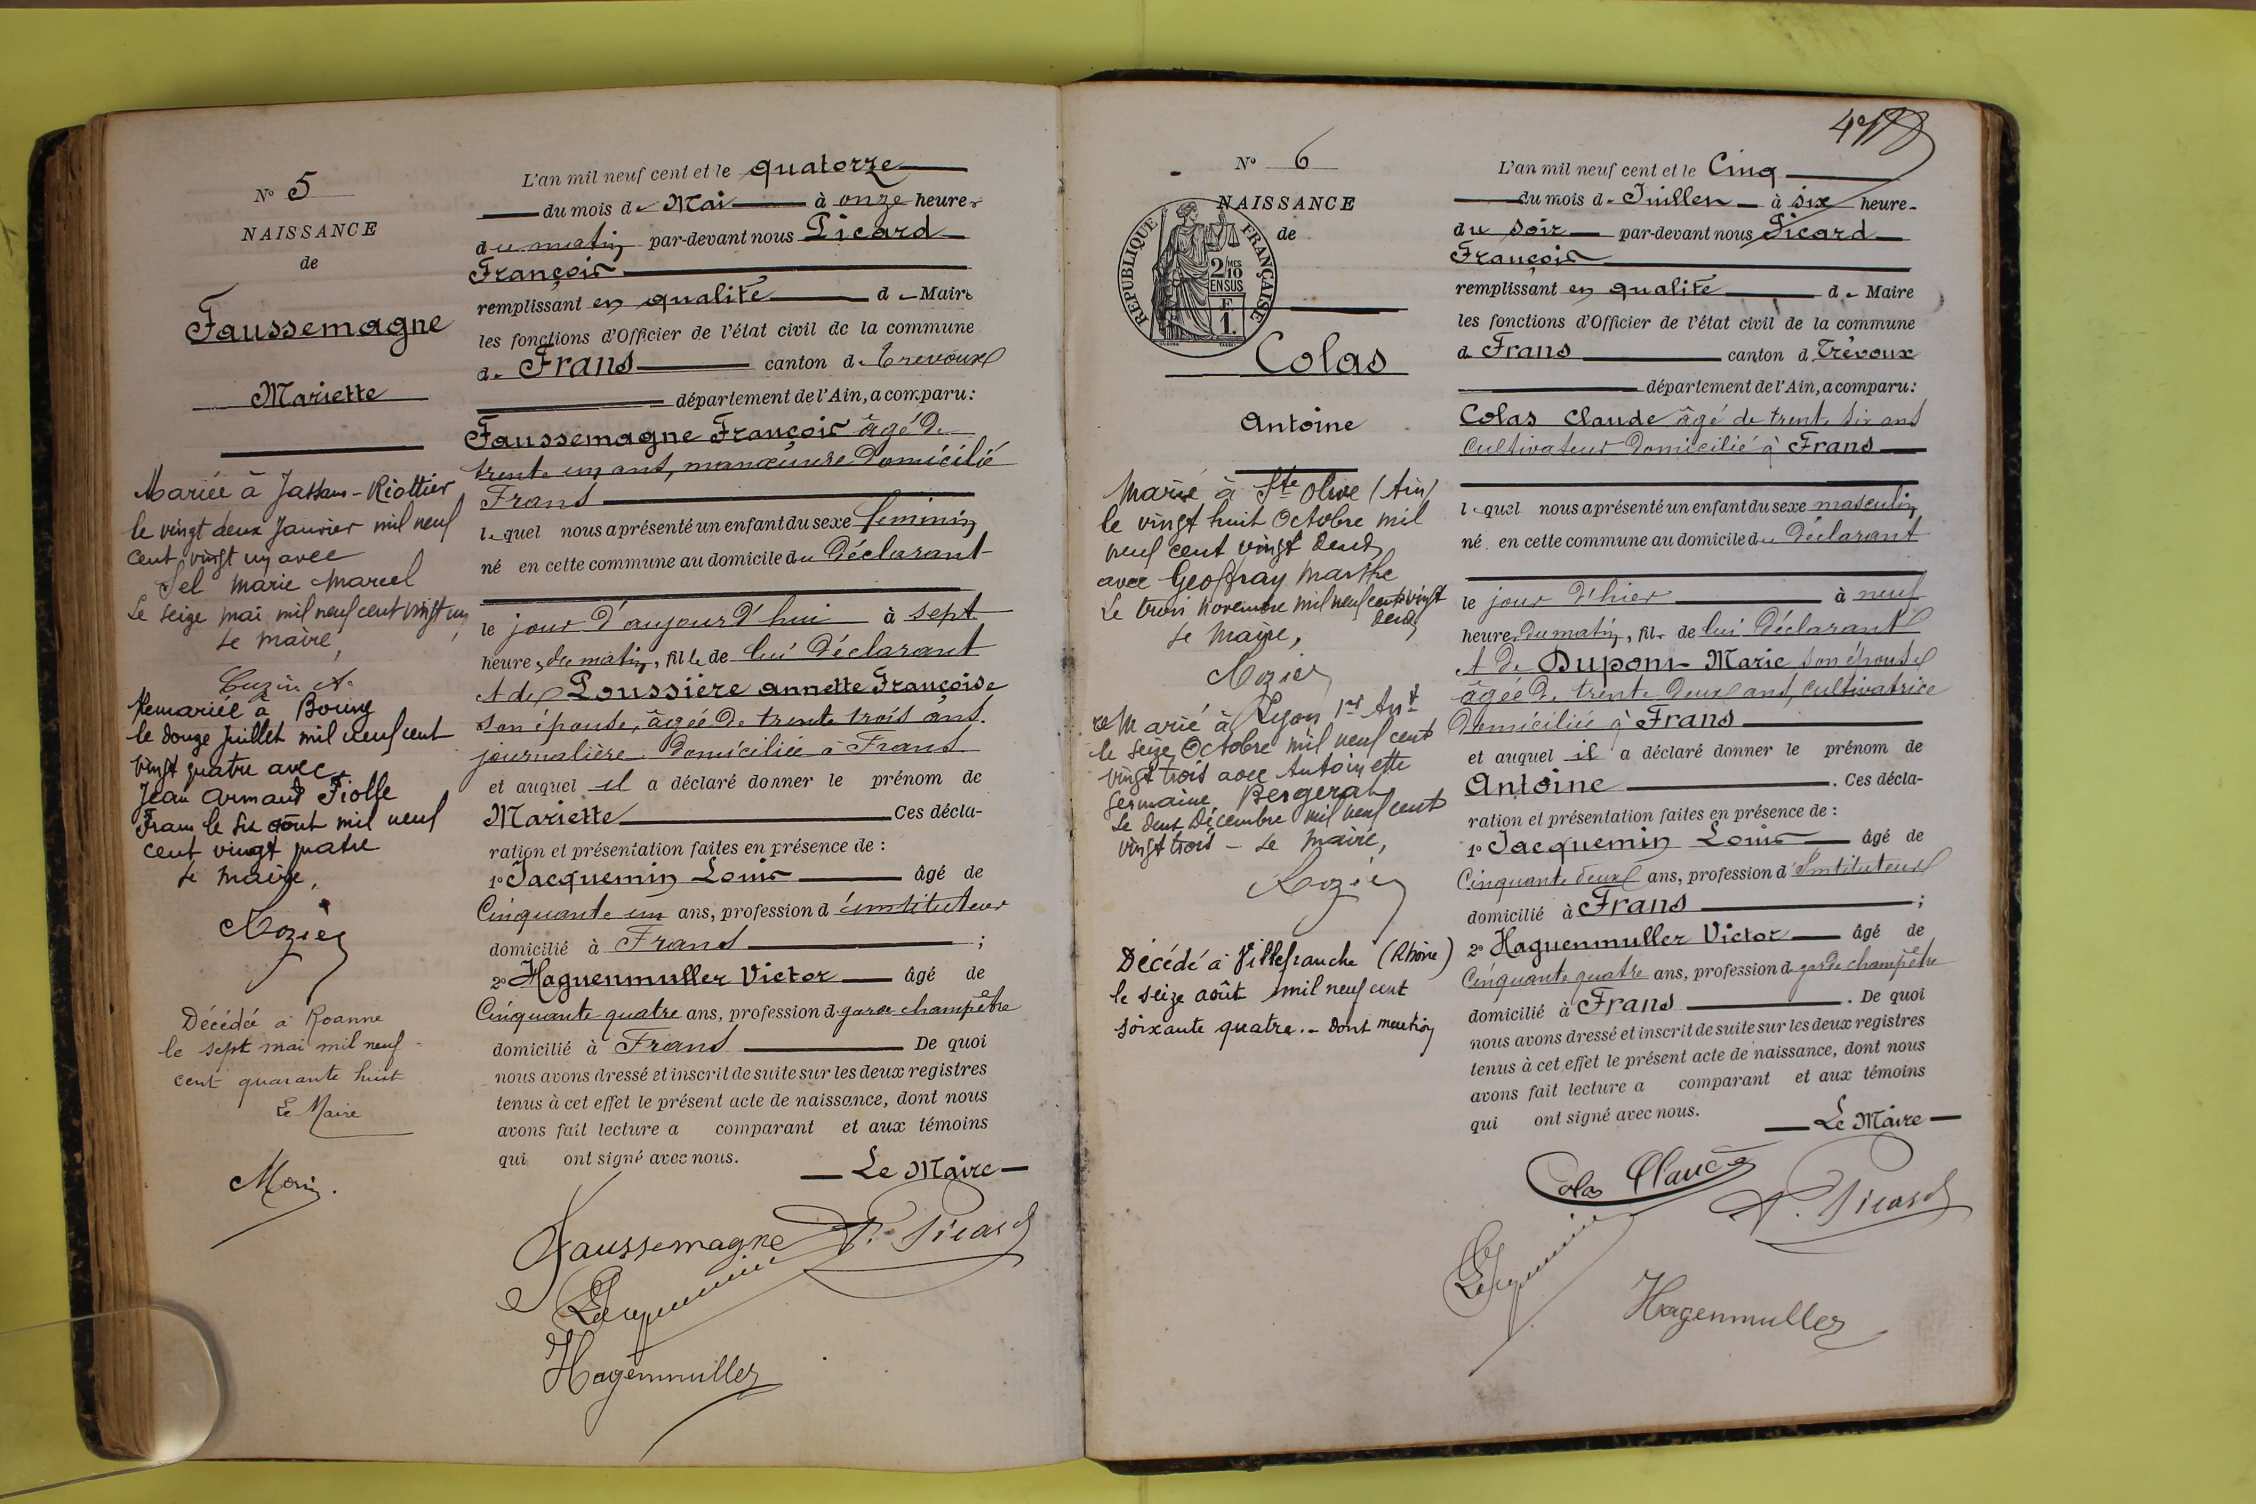 N° 5
NAISSANCE
de
Faussemagne
Mariette
Mariée à Jassans-Riottier
le vingt deux Janvier mil neuf
cent vingt un avec
Sel Marie Marcel
Le seize mai mil neuf cent vingt un
Le maire,
Remariée à Bourg
le douze Juillet mil neuf cent
vingt quatre avec
Jean Armand Fiolle
Frans le six août mil neuf
cent vingt quatre
Le Maire,
Rozier
Décédée à Roanne
le sept mai mil neuf
cent quarante huit
Le Maire
L'an mil neuf cent et le quatorze
du mois de Mai à onze heures
du matin par-devant nous Picard
François
remplissant en qualité de Maire
les fonctions d'Officier de l'état civil de la commune
de Frans canton de Trévoux
département de l'Ain, a comparu:
Faussemagne François âgé de
trente un ans, manœuvre domicilié
Frans
lequel nous a présenté un enfant du sexe féminin
né en cette commune au domicile du déclarant
le jour d'aujourd'hui à sept
heures du matin, fille de lui déclarant
et de Poussière Annette Françoise
son épouse, âgée de trente trois ans.
journalière domiciliée à Frans
et auquel il a déclaré donner le prénom de
Mariette Ces décla-
ration et présentation faites en présence de :
1° Jacquemin Louis âgé de
Cinquante un ans, profession d'instituteur
domicilié à Frans ;
2° Haguenmuller Victor âgé de
Cinquante quatre ans, profession de garde champêtre
domicilié à Frans De quoi
nous avons dressé et inscrit de suite sur les deux registres
tenus à cet effet le présent acte de naissance, dont nous
avons fait lecture a comparant et aux témoins
qui ont signé avec nous.
Le Maire
Faussemagne
P. Picard
Jacquemin
Hagenmuller
N° 6
NAISSANCE
de
REPUBLIQUE FRANÇAISE
2/10 MES
EN SUS
F
1.
Colas
Antoine
Marié à Ste Olive (Ain)
le vingt huit Octobre mil
neuf cent vingt deux
avec Geoffray Marthe
Le trois novembre mil neuf cent vingt
deux
Le Maire,
Rozier
remarié à Lyon 1er Art
le seize Octobre mil neuf cent
vingt trois avec Antoinette
Germaine Bergerat
Le deux Décembre mil neuf cent
vingt trois - Le Maire,
Rozier
Décédé à Villefranche (Rhône)
le seize août mil neuf cent
soixante quatre.- Dont mention
L'an mil neuf cent et le Cinq
du mois de Juillet à six heure
du soir par-devant nous Picard
François
remplissant en qualité de Maire
les fonctions d'Officier de l'état civil de la commune
de Frans canton d Trévoux
département de l'Ain, a comparu:
Colas Claude âgé de trente six ans
Cultivateur domicilié à Frans
lequel nous a présenté un enfant du sexe masculin
né en cette commune au domicile du Déclarant
le jour d'hier à neuf
heures du matin, fils de lui Déclarant
et de Dupont Marie son épouse
âgée de trente deux ans, cultivatrice
domiciliée à Frans
et auquel il a déclaré donner le prénom de
Antoine . Ces décla-
ration et présentation faites en présence de :
1° Jacquemin Louis âgé de
Cinquante deux ans, profession d'Instituteur
domicilié à Frans ;
2° Haguenmuller Victor âgé de
Cinquante quatre ans, profession de garde champêtre
domicilié à Frans . De quoi
nous avons dressé et inscrit de suite sur les deux registres
tenus à cet effet le présent acte de naissance, dont nous
avons fait lecture a comparant et aux témoins
qui ont signé avec nous.
Le Maire
Colas Claude
P. Picard
Jacquemin
Hagenmuller